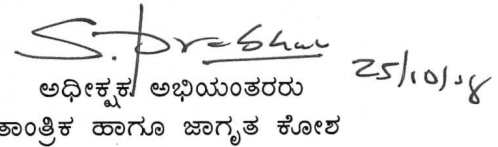 S. Prabhu 25/10/18
ಅಧೀಕ್ಷಕ ಅಭಿಯಂತರರು
ತಾಂತ್ರಿಕ ಹಾಗೂ ಜಾಗೃತ ಕೋಶ